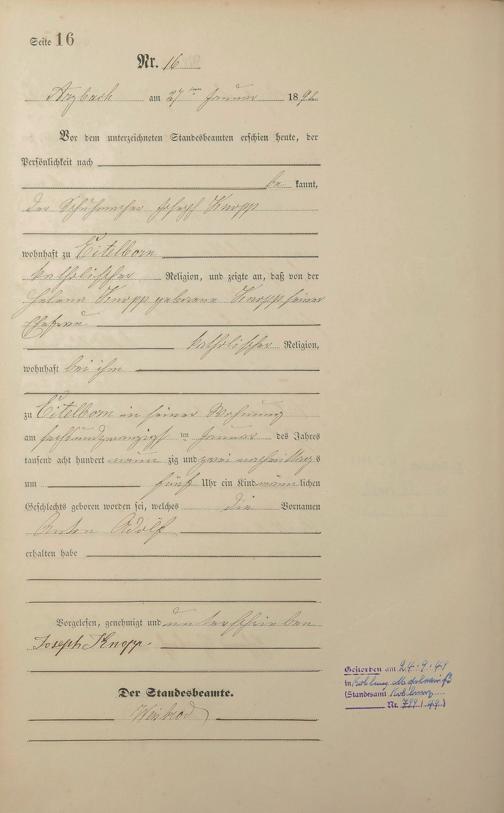 Seite 16
Nr. 16
Arzbach am 27ten Januar 1892
Vor dem unterzeichneten Standesbeamten erschien heute, der
Persönlichkeit nach
be kannt,
der Schuhmacher Joseph Knopp
wohnhaft zu Eitelborn
katholischer Religion, und zeigte an, daß von der
Helena Knopp geborene Knopp, seiner
Ehefrau
katholischer Religion,
wohnhaft bei ihm
zu Eitelborn in seiner Wohnung
am sechsundzwanzigsten Januar des Jahres
tausend acht hundert neun zig und zwei nachmittags
um fünf Uhr ein Kind männ lichen
Geschlechts geboren worden sei, welches die Vornamen
Anton Adolf
erhalten habe
Vorgelesen, genehmigt und unterschrieben
Joseph Knopp.
Der Standesbeamte.
Weisbrod
Gestorben am 24.9.41
in Koblenz
(Standesamt Koblenz
Nr. 799/41)